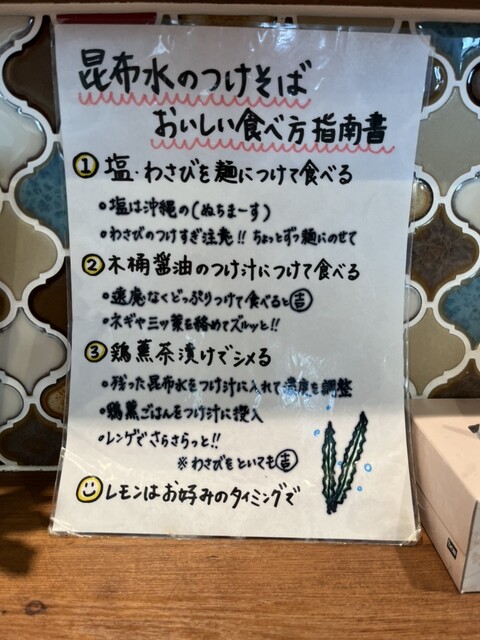 昆布水のつけそば
おいしい食べ方指南書
① 塩・わさびを麺につけて食べる
・塩は沖縄の(ぬちまーす)
・わさびのつけすぎ注意!! ちょっとずつ麺にのせて
② 木桶醤油のつけ汁につけて食べる
・遠慮なくどっぷりつけて食べると㊉
・ネギや三ッ葉を絡めてズルッと!!
③ 鶏薫茶漬けでシメる
・残った昆布水をつけ汁に入れて濃度を調整
・鶏薫ごはんをつけ汁に投入
・レンゲでさらさらっと!!
※わさびをといても吉
レモンはお好みのタイミングで